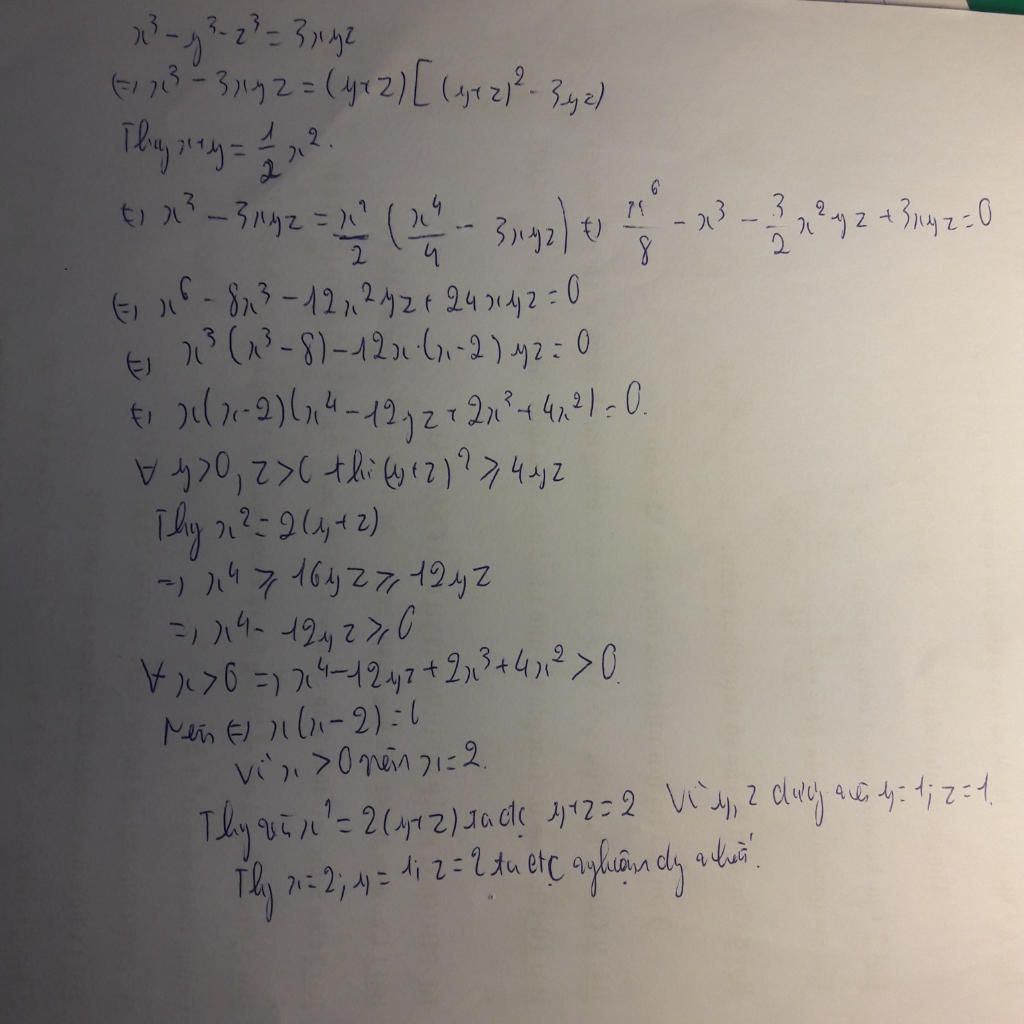 x³ - y³ - z³ = 3xyz
⇔ x³ - 3xyz = (y+z)[(y+z)² - 3yz)
Thay x+y = 1/2 x².
⇔ x³ - 3xyz = x²/2 (x⁴/4 - 3xyz) ⇔ x⁶/8 - x³ - 3/2 x²yz + 3xyz = 0
⇔ x⁶ - 8x³ - 12x²yz + 24xyz = 0
⇔ x³(x³ - 8) - 12x·(x-2)yz = 0
⇔ x(x-2)(x⁴ - 12yz + 2x³ + 4x²) = 0.
∀ y>0, z>0 thì (y+z)² ⩾ 4yz
Thay x² = 2(y+z)
⇒ x⁴ ⩾ 16yz ⩾ 12yz
⇒ x⁴ - 12yz ⩾ 0
∀ x>0 ⇒ x⁴ - 12yz + 2x³ + 4x² > 0.
Nên ⇔ x(x-2) = 0
Vì x > 0 nên x = 2.
Thay vào x² = 2(y+z) ta đc y+z = 2 Vì y, z dương nên y = 1; z = 1.
Thay x = 2; y = 1; z = 2 ta đc nghiệm duy nhất.